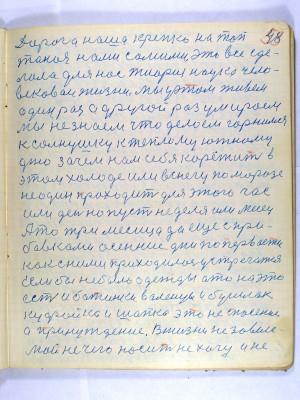 58
Дорога наша крепко на топ
такая нами самими, это все сде-
лала для нас теория наука чело-
веческая жизни, мы этом живем
один раз а другой раз умираем
мы не знаем что делаем гарнемся
к солнушку к теплому южному
дню зачем нам себя корежить в
этом холоде или в снегу по морозе
не один приходит для этого час
или день но пусть неделя или месец
А то три месица да еще с при-
бавками осенние дни по первости
как с ними приходилось устречатся
если бы не было одежды а то на это
есть и ботинки валенци и бушлак
кудрайка и шапка это не спасение
а принуждение. В жизни не завися
мой не чего носить не хочу и не